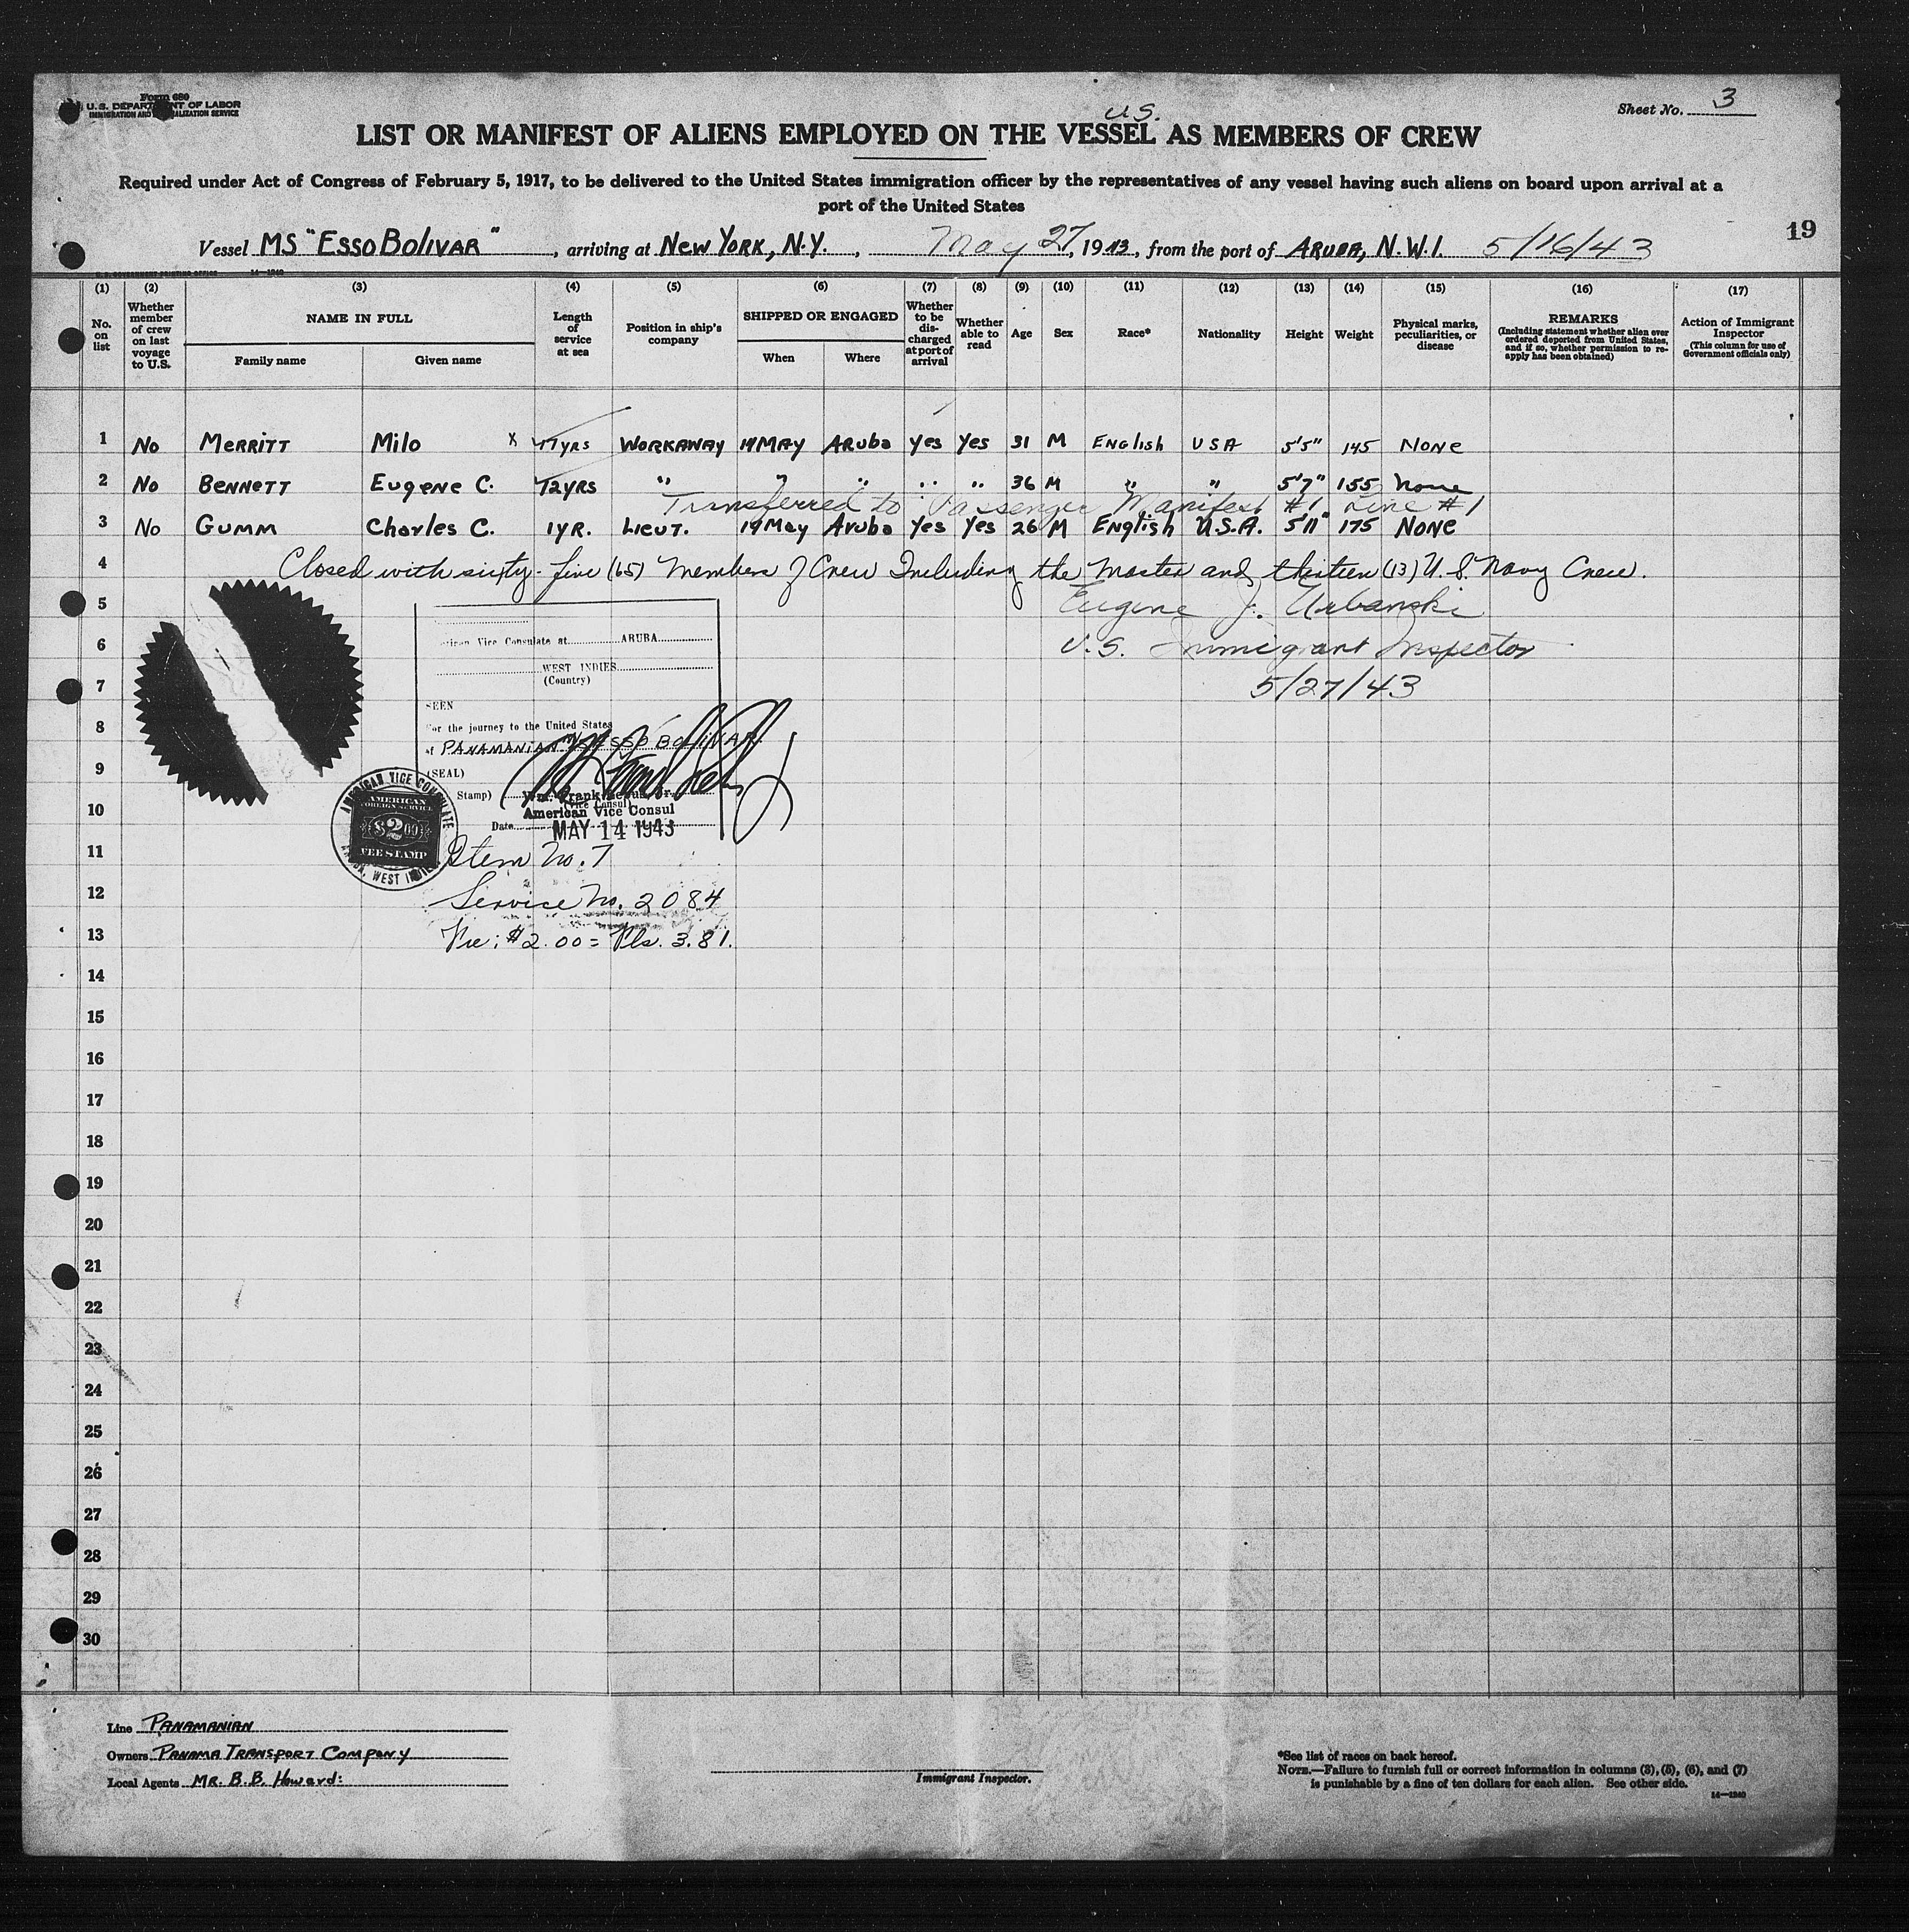 Form 680
U.S. DEPARTMENT OF LABOR
IMMIGRATION AND NATURALIZATION SERVICE
Sheet No. 3
U.S.
LIST OR MANIFEST OF ALIENS EMPLOYED ON THE VESSEL AS MEMBERS OF CREW
Required under Act of Congress of February 5, 1917, to be delivered to the United States immigration officer by the representatives of any vessel having such aliens on board upon arrival at a
port of the United States
19
Vessel MS "ESSO BOLIVAR", arriving at NEW YORK, N.Y., May 27, 1943, from the port of ARUBA, N.W.I. 5/16/43
U.S. GOVERNMENT PRINTING OFFICE 14—1240
(1) (2) (3) (4) (5) (6) (7) (8) (9) (10) (11) (12) (13) (14) (15) (16) (17)
No. on list
Whether member of crew on last voyage to U.S.
NAME IN FULL
Family name
Given name
Length of service at sea
Position in ship's company
SHIPPED OR ENGAGED
When
Where
Whether to be discharged at port of arrival
Whether able to read
Age
Sex
Race*
Nationality
Height
Weight
Physical marks, peculiarities, or disease
REMARKS
(Including statement whether alien ever ordered deported from United States, and if so, whether permission to reapply has been obtained)
Action of Immigrant Inspector
(This column for use of Government officials only)
1 No MERRITT Milo x 17yrs WORKAWAY 14MAY Aruba Yes Yes 31 M ENGlish USA 5'5" 145 NONE
2 No BENNETT Eugene C. 12YRS " " " " " 36 M " " 5'7" 155 None
Transferred to Passenger Manifest #1 Line #1
3 No GUMM Charles C. 1YR. LIEUT. 14May Aruba Yes Yes 26 M English U.S.A. 5'11" 175 NONE
4 Closed with sixty-five (65) Members of Crew Including the Master and thirteen (13) U.S. Navy Crew.
5 Eugene J. Urbanski
6 U.S. Immigrant Inspector
7 5/27/43
8
9
10
11
12
13
14
15
16
17
18
19
20
21
22
23
24
25
26
27
28
29
30
Vice Consulate at ARUBA
WEST INDIES
(Country)
SEEN
For the journey to the United States
of PANAMANIAN M/S ESSO BOLIVAR
(SEAL)
Stamp)
(Vice Consul)
American Vice Consul
Date MAY 14 1943
AMERICAN VICE CONSULATE
AMERICAN FOREIGN SERVICE
$2.00
FEE STAMP
ARUBA, WEST INDIES
Item No. 7
Service No. 2084
Fee: $2.00 = Fls. 3.81.
Line PANAMANIAN
Owners PANAMA TRANSPORT COMPANY
Local Agents MR. B.B. Howard:
Immigrant Inspector.
*See list of races on back hereof.
NOTE.—Failure to furnish full or correct information in columns (3), (5), (6), and (7)
is punishable by a fine of ten dollars for each alien. See other side.
14—1240